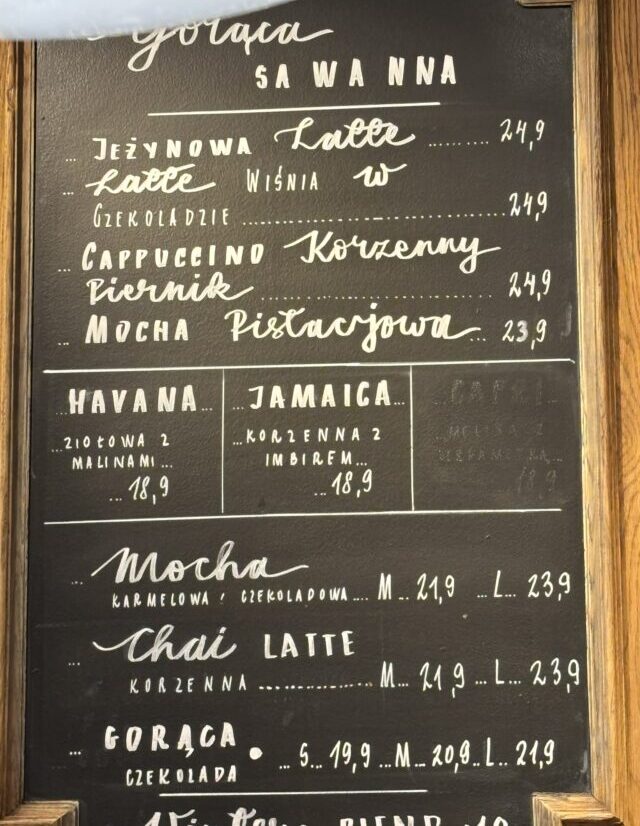 Gorąca
SAWANNA
... JEŻYNOWA Latte ......... 24,9
... Latte WIŚNIA w
CZEKOLADZIE ................................ 24,9
... CAPPUCCINO Korzenny
Piernik ................................ 24,9
... MOCHA Pistacjowa ... 23,9
...HAVANA...
...ZIOŁOWA Z
MALINAMI...
...18,9
...JAMAICA...
...KORZENNA Z
IMBIREM...
...18,9
... Mocha
KARMELOWA / CZEKOLADOWA.... M... 21,9 ...L... 23,9
... Chai LATTE
KORZENNA .................. M... 21,9 ...L... 23,9
... GORĄCA
CZEKOLADA • ... S... 19,9 ...M...20,9..L.. 21,9